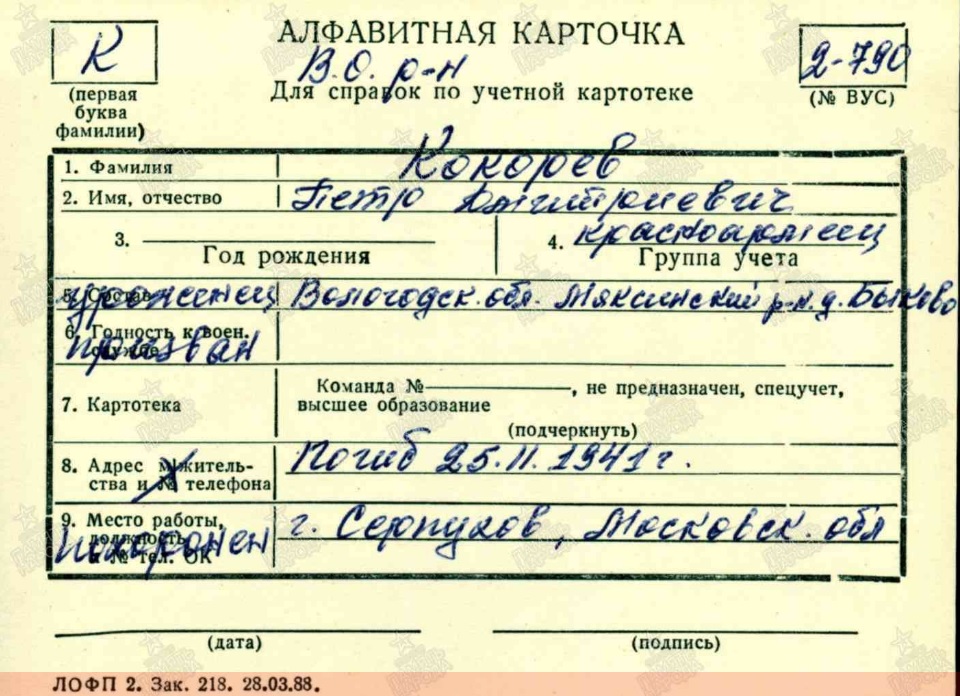 АЛФАВИТНАЯ КАРТОЧКА
К
В.О. р-н
2-790
Для справок по учетной картотеке
(первая
буква
фамилии)
(№ ВУС)
1. Фамилия Кокорев
2. Имя, отчество Петр Дмитриевич
3. 4. красноармеец
Год рождения Группа учета
5. Состав уроженец Вологодск. обл. Мяксинский р-н. д. Быково
6. Годность к воен.
службе призван
Команда № , не предназначен, спецучет,
7. Картотека высшее образование
(подчеркнуть)
8. Адрес м/жительства и № телефона Погиб 25.11.1941 г.
9. Место работы,
должность
и № тел. ОК похоронен г. Серпухов, Московск. обл
(дата) (подпись)
ЛОФП 2. Зак. 218. 28.03.88.